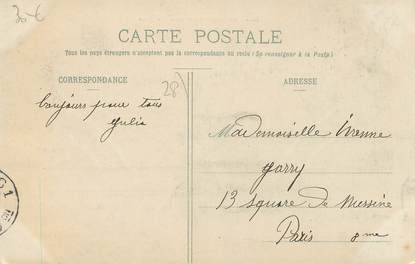 30€
CARTE POSTALE
Tous les pays étrangers n'acceptent pas la correspondance au recto (Se renseigner à la Poste).
CORRESPONDANCE
28
ADRESSE
bonjours pour tous
Julia
Mademoiselle
13 Square de Messine
Paris 8me